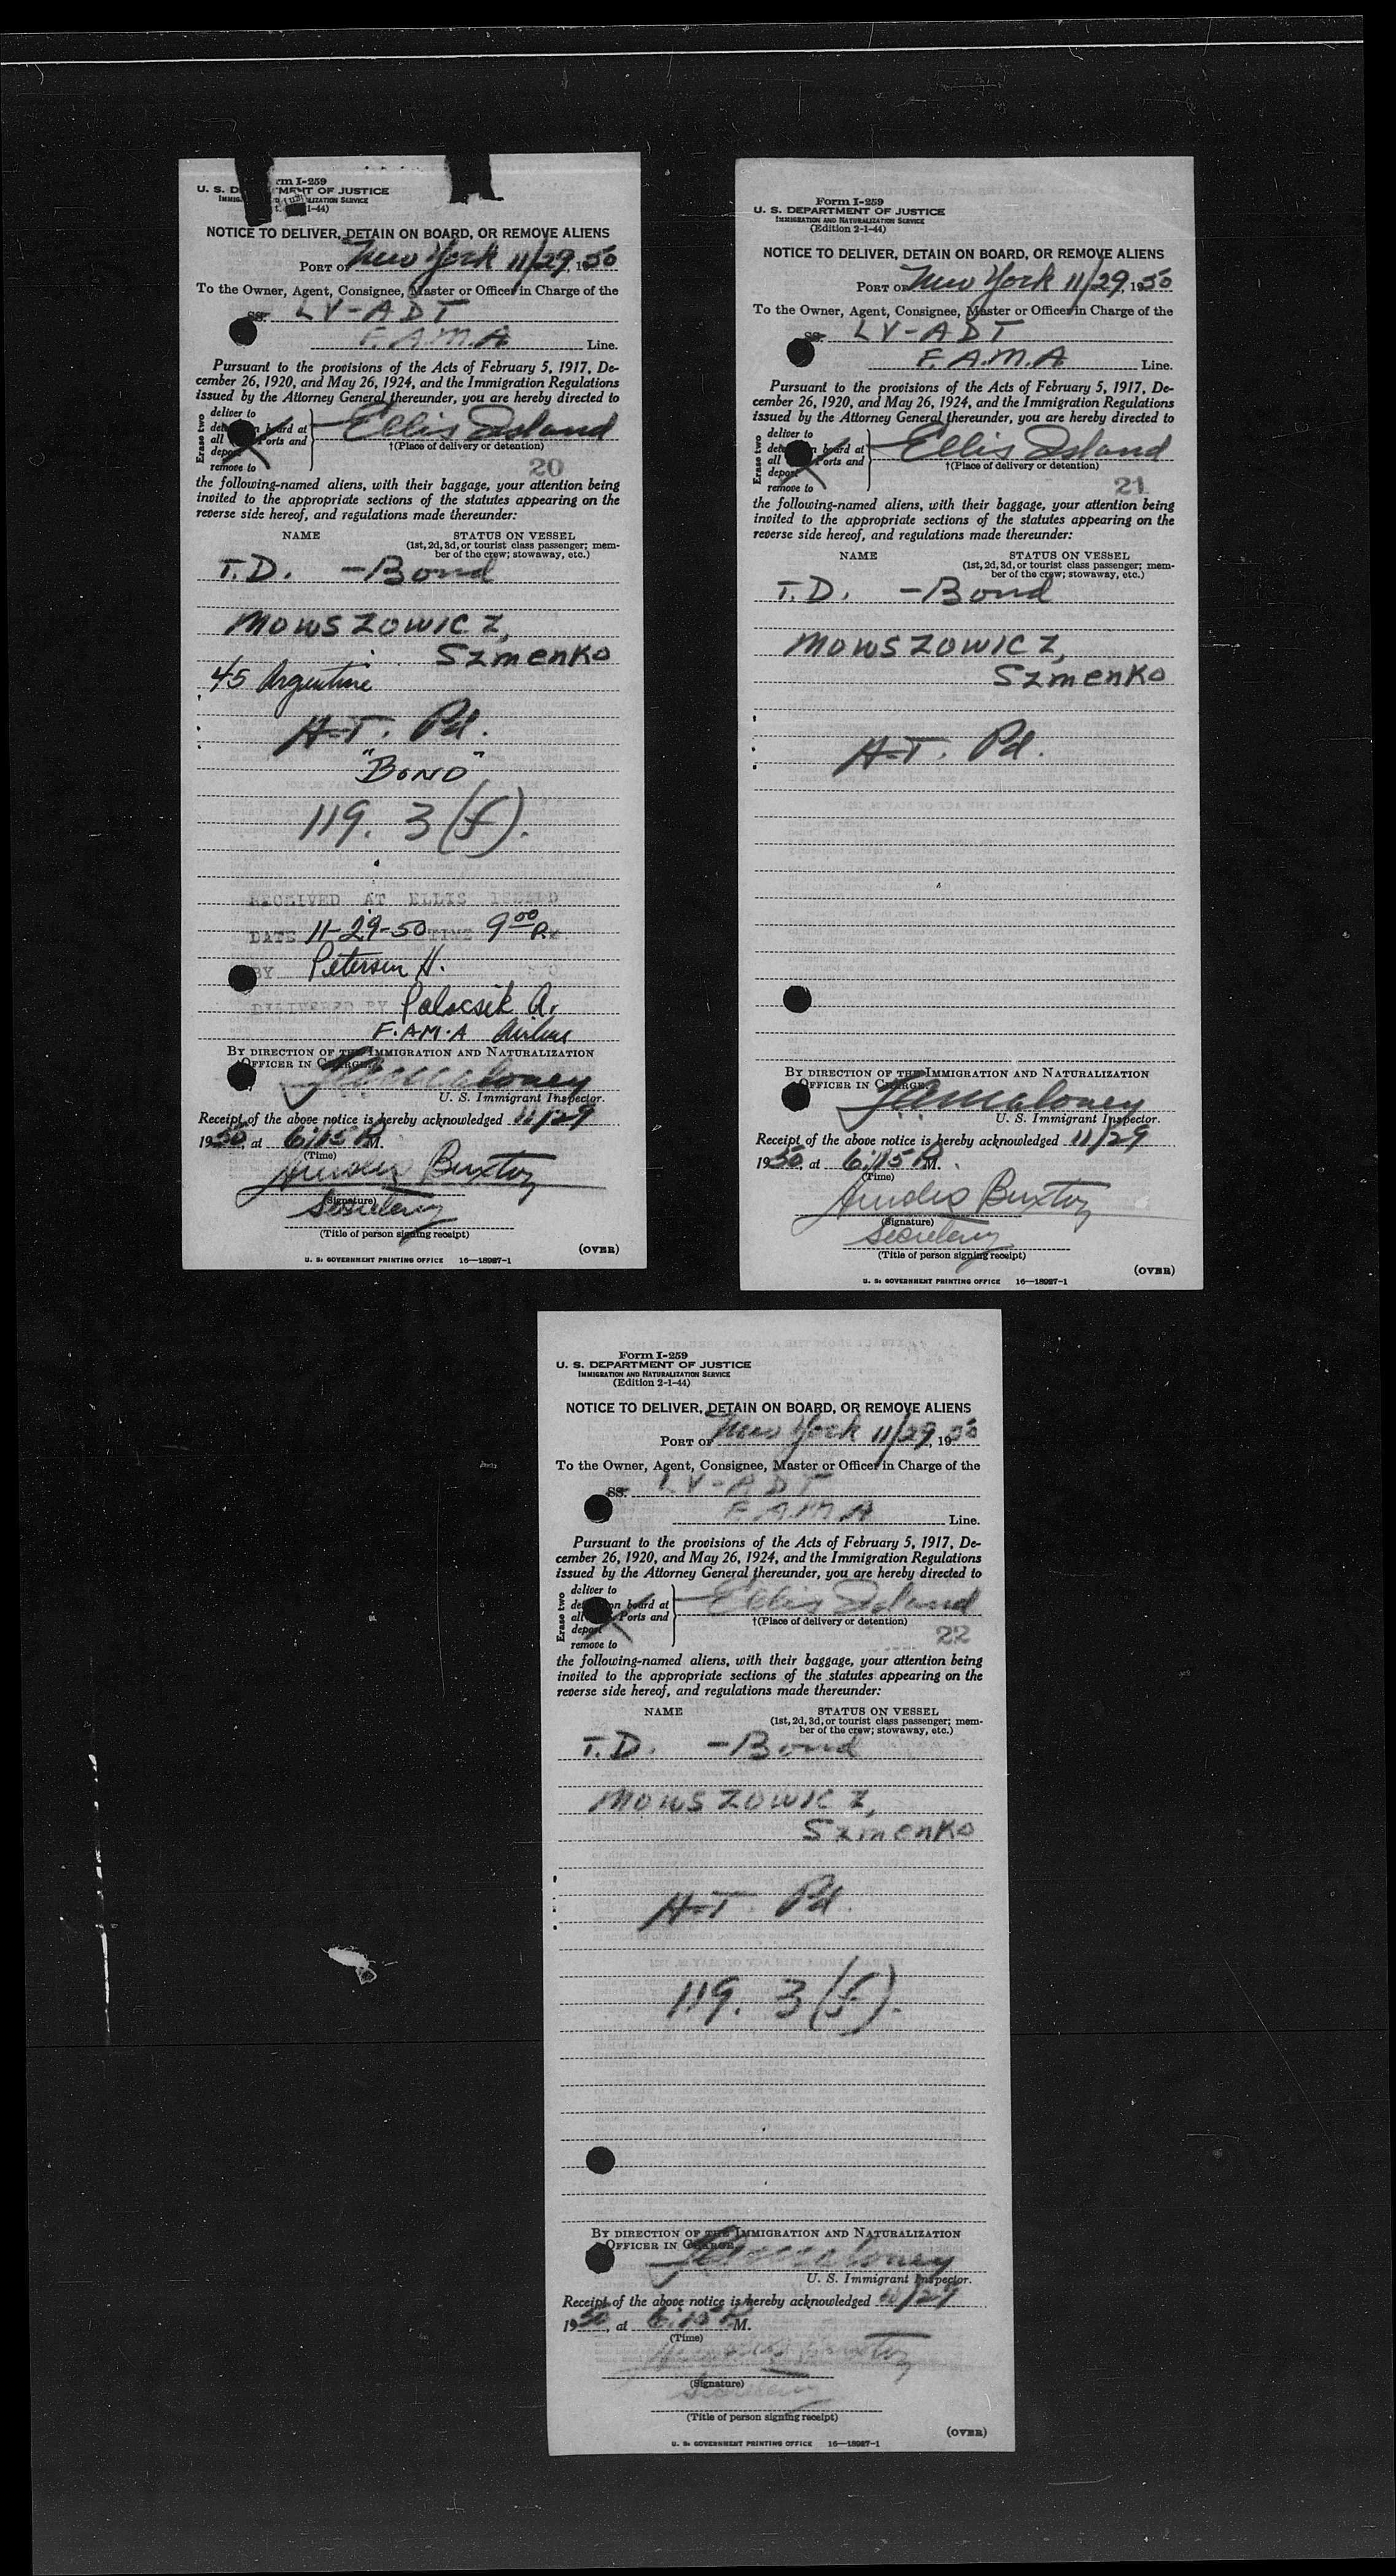 rm I-259
U. S. D MENT OF JUSTICE
LIZATION SERVICE
1-44)
NOTICE TO DELIVER, DETAIN ON BOARD, OR REMOVE ALIENS
PORT OF New York 11/29, 1950
To the Owner, Agent, Consignee, Master or Officer in Charge of the
SS. LV-ADT
F.A.M.A Line.
Pursuant to the provisions of the Acts of February 5, 1917, De-
cember 26, 1920, and May 26, 1924, and the Immigration Regulations
issued by the Attorney General thereunder, you are hereby directed to
Erase two
deliver to
det n board at
all Ports and
deport
remove to
Ellis Island
†(Place of delivery or detention)
20
the following-named aliens, with their baggage, your attention being
invited to the appropriate sections of the statutes appearing on the
reverse side hereof, and regulations made thereunder:
NAME STATUS ON VESSEL
(1st, 2d, 3d, or tourist class passenger; mem-
ber of the crew; stowaway, etc.)
T.D. -Bond
MOWSZOWICZ,
SzmenKo
45 Argentine
H-T. Pd.
"BOND"
119. 3(f).
RECEIVED AT ELLIS ISLAND
DATE 11-29-50 TIME 9 00 P.M.
BY Petersen H.
DELIVERED BY Palocsik A.
F.A.M.A Airline
BY DIRECTION OF THE IMMIGRATION AND NATURALIZATION
OFFICER IN CHARGE.
JAMaloney
U. S. Immigrant Inspector.
Receipt of the above notice is hereby acknowledged 11/29
1950, at 6:15 P.M.
(Time)
Buxton
(Signature)
Secretary
(Title of person signing receipt)
(OVER)
U. S. GOVERNMENT PRINTING OFFICE 16—18927-1
Form I-259
U. S. DEPARTMENT OF JUSTICE
IMMIGRATION AND NATURALIZATION SERVICE
(Edition 2-1-44)
NOTICE TO DELIVER, DETAIN ON BOARD, OR REMOVE ALIENS
PORT OF New York 11/29, 1950
To the Owner, Agent, Consignee, Master or Officer in Charge of the
SS. LV-ADT
F.A.M.A Line.
Pursuant to the provisions of the Acts of February 5, 1917, De-
cember 26, 1920, and May 26, 1924, and the Immigration Regulations
issued by the Attorney General thereunder, you are hereby directed to
Erase two
deliver to
det n board at
all Ports and
deport
remove to
Ellis Island
†(Place of delivery or detention)
21
the following-named aliens, with their baggage, your attention being
invited to the appropriate sections of the statutes appearing on the
reverse side hereof, and regulations made thereunder:
NAME STATUS ON VESSEL
(1st, 2d, 3d, or tourist class passenger; mem-
ber of the crew; stowaway, etc.)
T.D. -Bond
MOWSZOWICZ,
SzmenKo
H-T. Pd.
BY DIRECTION OF THE IMMIGRATION AND NATURALIZATION
OFFICER IN CHARGE.
JAMaloney
U. S. Immigrant Inspector.
Receipt of the above notice is hereby acknowledged 11/29
1950, at 6:15 P.M.
(Time)
Buxton
(Signature)
Secretary
(Title of person signing receipt)
(OVER)
U. S. GOVERNMENT PRINTING OFFICE 16—18927-1
Form I-259
U. S. DEPARTMENT OF JUSTICE
IMMIGRATION AND NATURALIZATION SERVICE
(Edition 2-1-44)
NOTICE TO DELIVER, DETAIN ON BOARD, OR REMOVE ALIENS
PORT OF New York 11/29, 1950
To the Owner, Agent, Consignee, Master or Officer in Charge of the
SS. LV-ADT
F.A.M.A Line.
Pursuant to the provisions of the Acts of February 5, 1917, De-
cember 26, 1920, and May 26, 1924, and the Immigration Regulations
issued by the Attorney General thereunder, you are hereby directed to
Erase two
deliver to
det on board at
all Ports and
deport
remove to
Ellis Island
†(Place of delivery or detention)
22
the following-named aliens, with their baggage, your attention being
invited to the appropriate sections of the statutes appearing on the
reverse side hereof, and regulations made thereunder:
NAME STATUS ON VESSEL
(1st, 2d, 3d, or tourist class passenger; mem-
ber of the crew; stowaway, etc.)
T.D. -Bond
MOWSZOWICZ,
SzmenKo
H-T. Pd.
119. 3(f).
BY DIRECTION OF THE IMMIGRATION AND NATURALIZATION
OFFICER IN CHARGE.
JAMaloney
U. S. Immigrant Inspector.
Receipt of the above notice is hereby acknowledged 11/29
1950, at 6:15 P.M.
(Time)
Buxton
(Signature)
Secretary
(Title of person signing receipt)
(OVER)
U. S. GOVERNMENT PRINTING OFFICE 16—18927-1